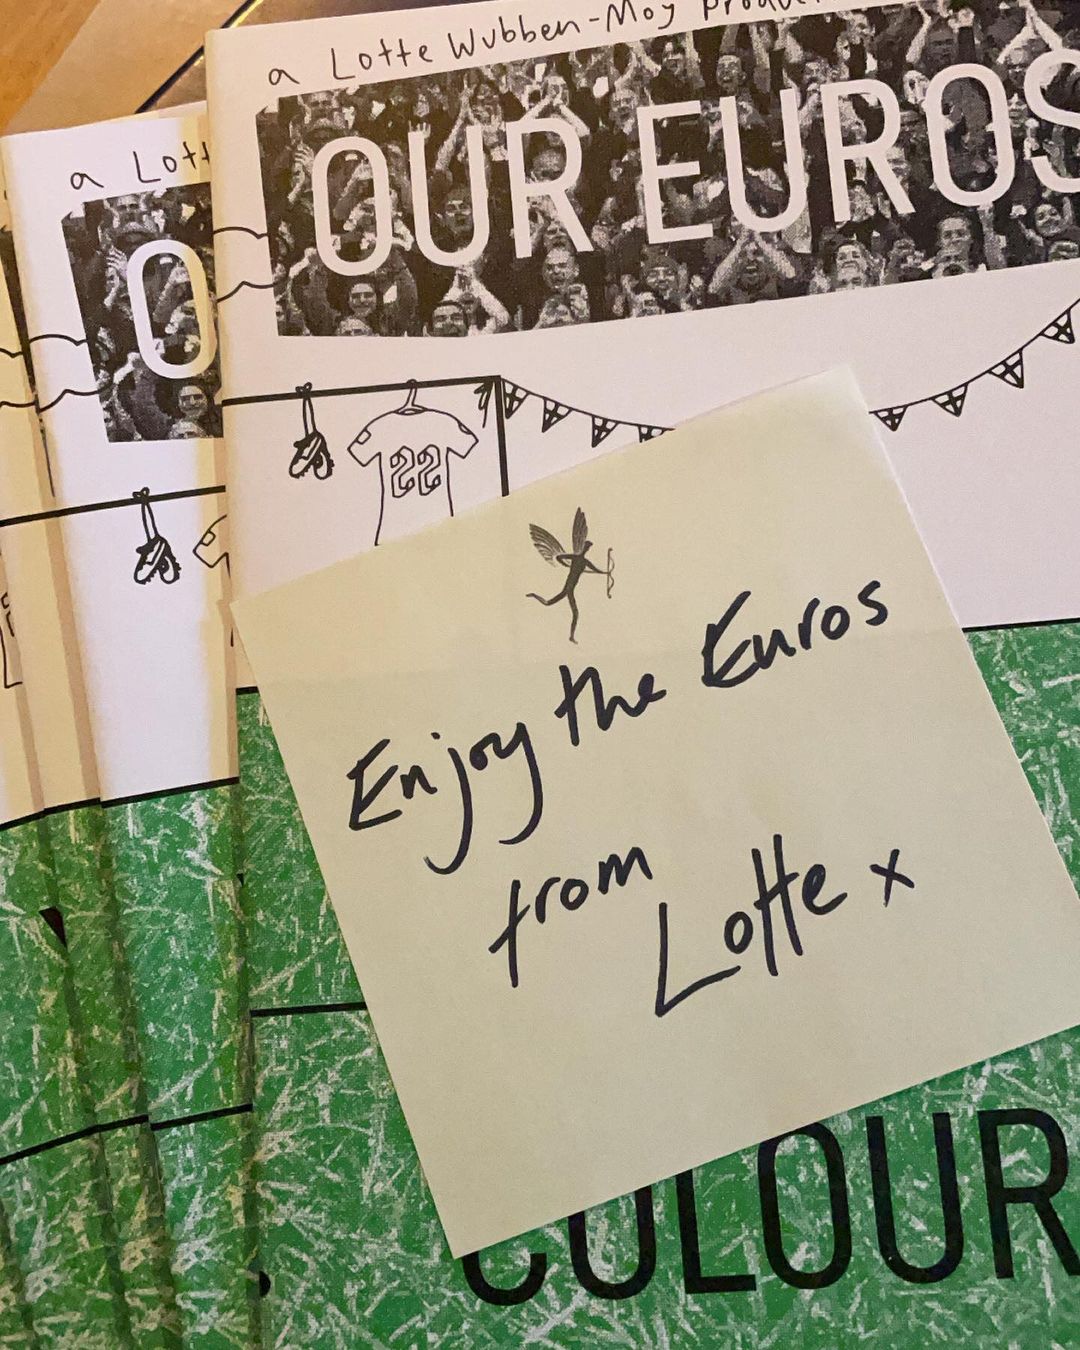 a Lotte Wubben-Moy
OUR EUROS
a Lott
O
22
Enjoy the Euros
from
Lotte x
COLOUR